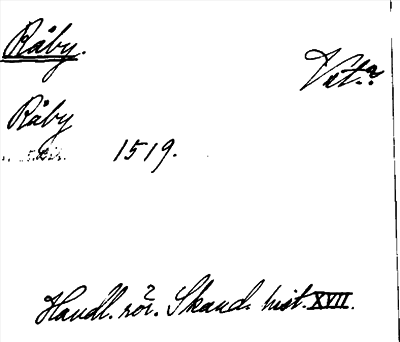 Råby.
Vet.?
Råby
1519.
Handl. rör. Skand. hist. XVII.